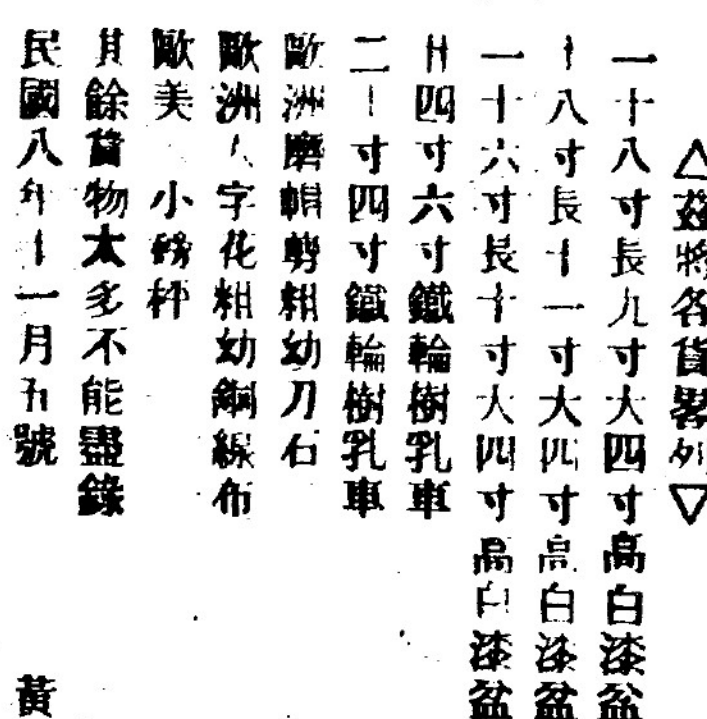 △茲將各貨畧列▽
一十八寸長九寸大四寸高白漆盆
十八寸長十一寸大四寸高白漆盆
一十六寸長十寸大四寸高白漆盆
廿四寸六寸鐵輪樹乳車
二十寸四寸鐵輪樹乳車
歐洲磨粗幼刀石
歐洲人字花粗幼銅線布
歐美 小磅秤
其餘貨物太多不能盡錄
民國八年十一月五號 黃